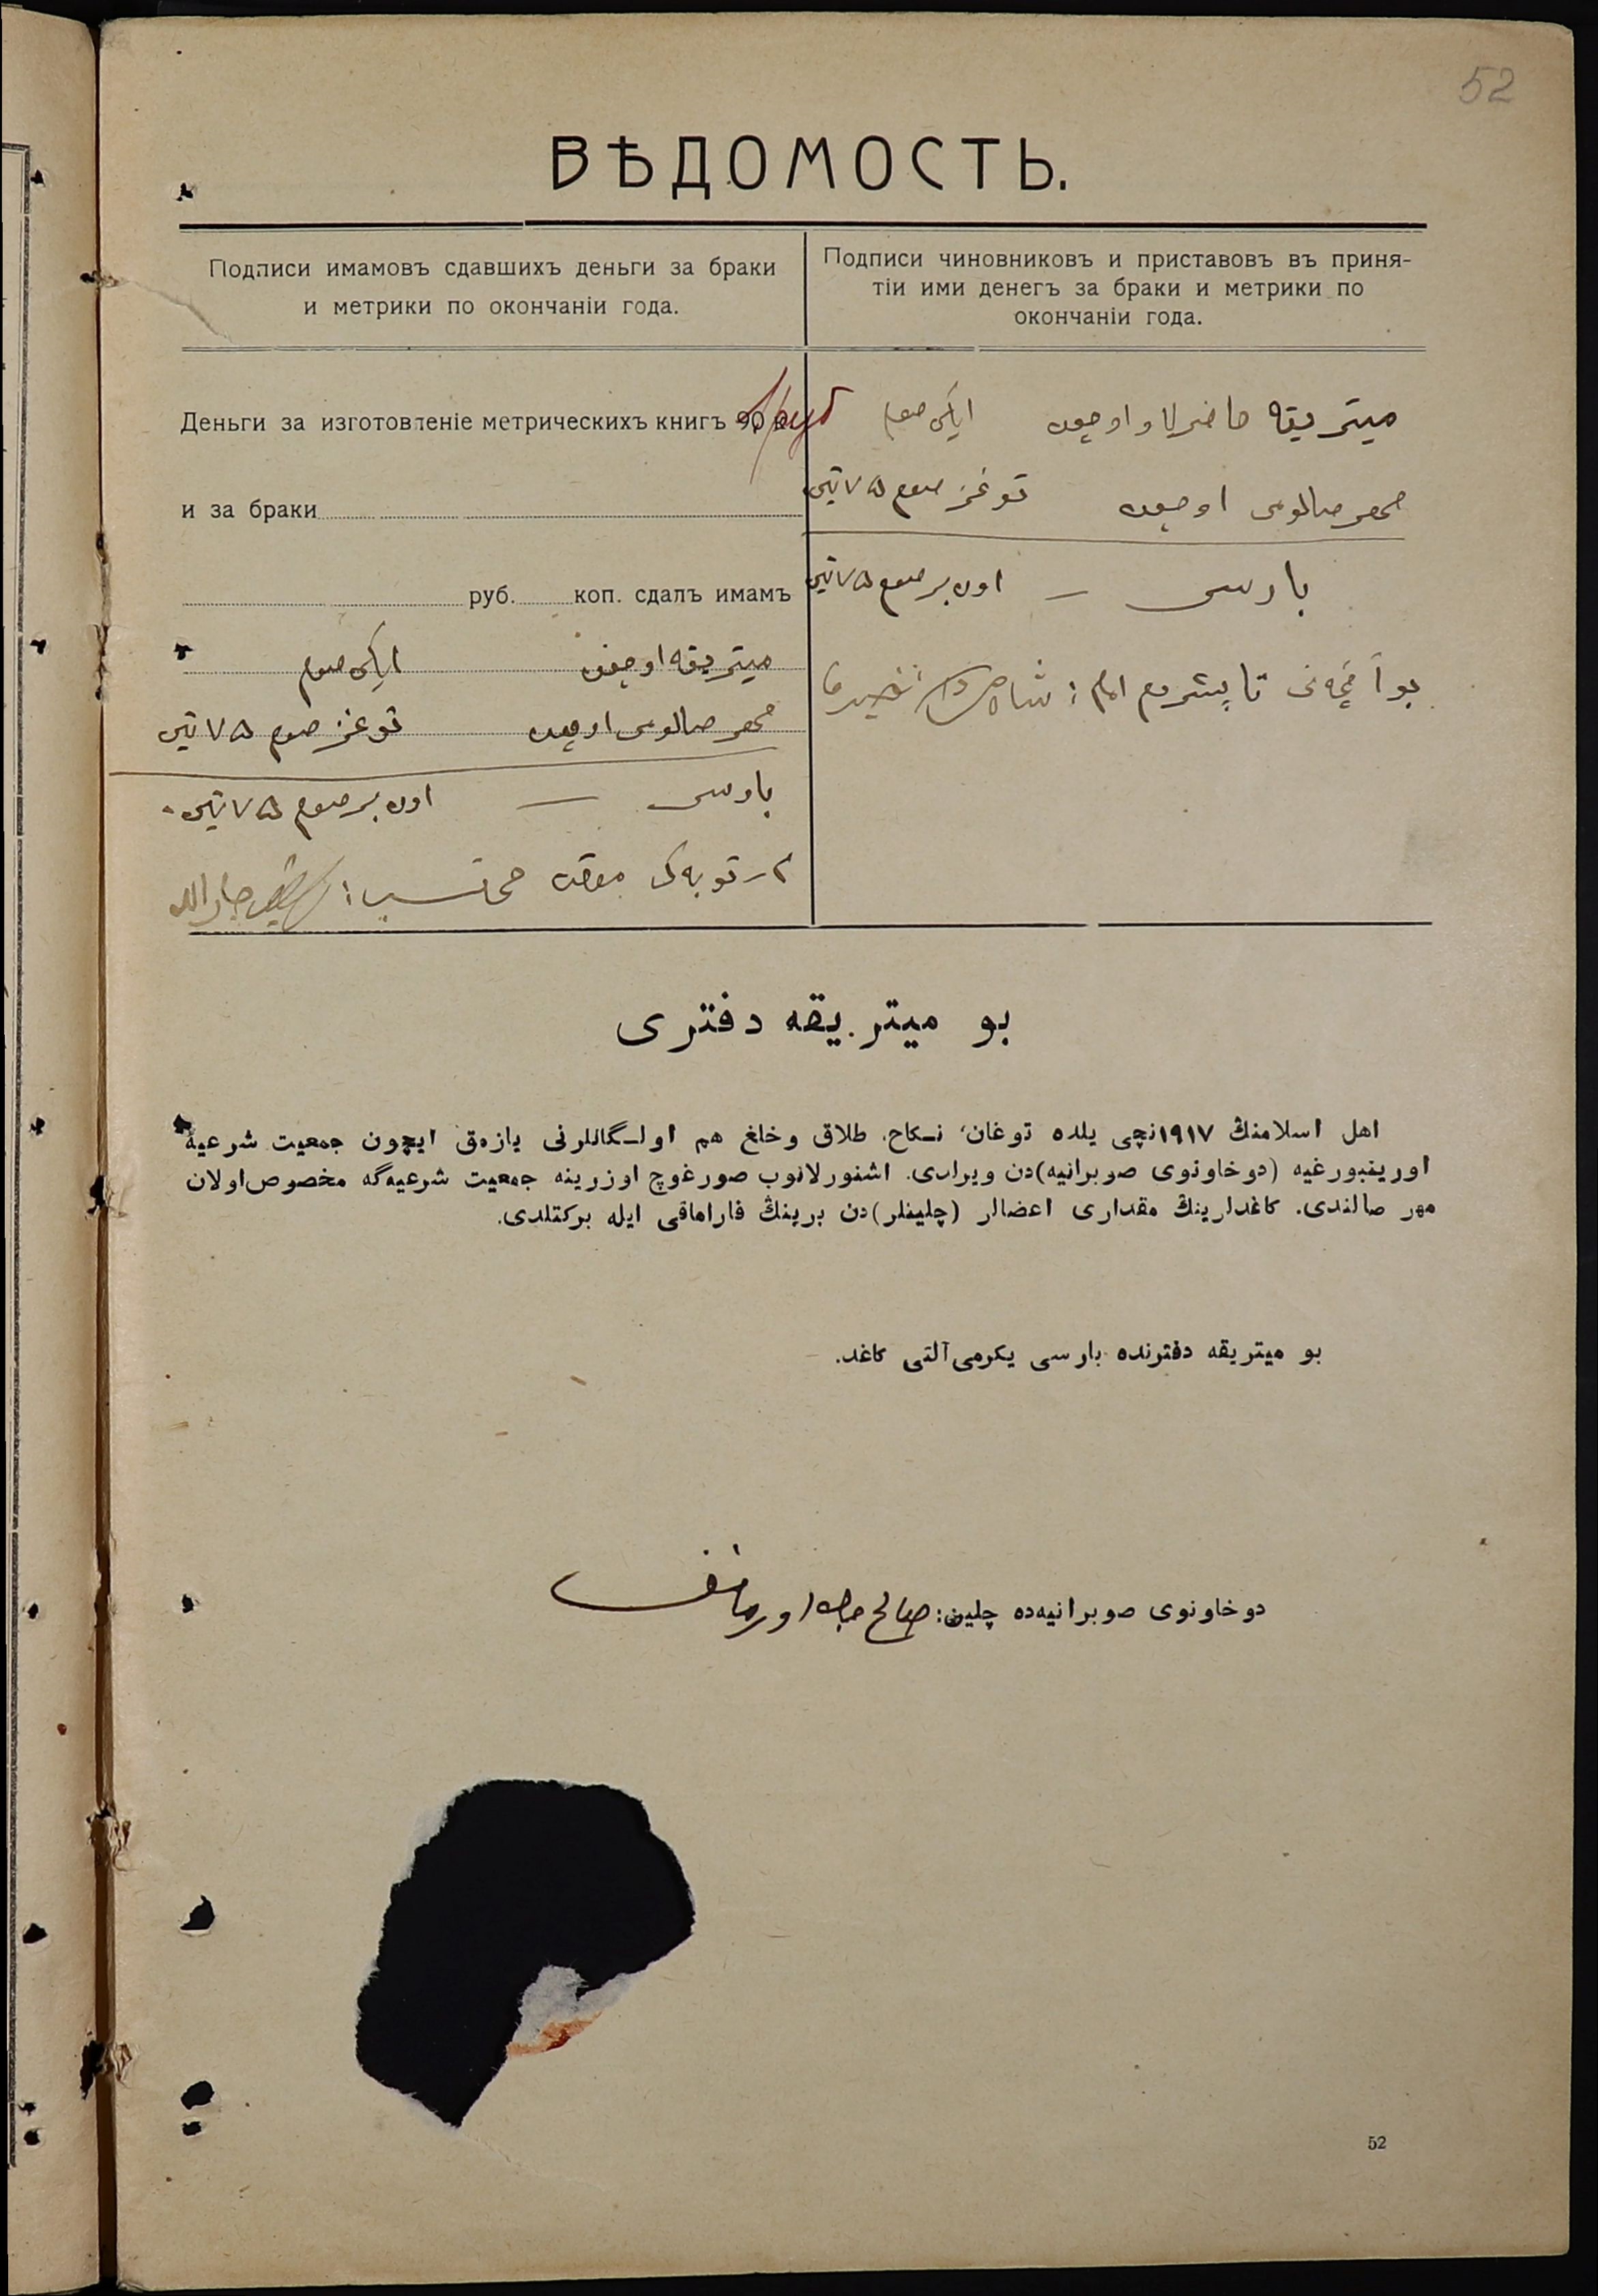 52
ВѢДОМОСТЬ.
Подписи имамовъ сдавшихъ деньги за браки
и метрики по окончаніи года.
Подписи чиновниковъ и приставовъ въ приня-
тіи ими денегъ за браки и метрики по
окончаніи года.
Деньги за изготовленіе метрическихъ книгъ 90 к руб
и за браки
руб. коп. сдалъ имамъ
ميتريقه اوچون ايكى صوم
مهر صالومى اوچون توغز صوم ٧٥ تين
بارسى — اون بر صوم ٧٥ تين
محتسب: جارالله
ميتريقه حاضرلاو اوچون ايكى صوم
مهر صالومى اوچون توغز صوم ٧٥ تين
بارسى — اون بر صوم ٧٥ تين
بو آقچه‌نى تاپشردم امام:
بو ميتريقه دفترى
اهل اسلامنڭ ١٩١٧نچى يلده توغان، نـكاح، طلاق وخلع هم اولـگانلرنى يازمق ايچون جمعيت شرعيهٔ
اورينبورغيه (دوخاونوى صوبرانيه)دن ويرلدى. اشنورلانوب صورغوچ اوزرينه جمعيت شرعيه‌گه مخصوص اولان
مهر صالندى. كاغدلارينڭ مقدارى اعضالر (چلينلر)دن برينڭ قاراماقى ايله بركتلدى.
بو ميتريقه دفترنده بارسى يكرمى آلتى كاغد.
دوخاونوى صوبرانيه‌ده چلين: صالح جان اورمانف
52